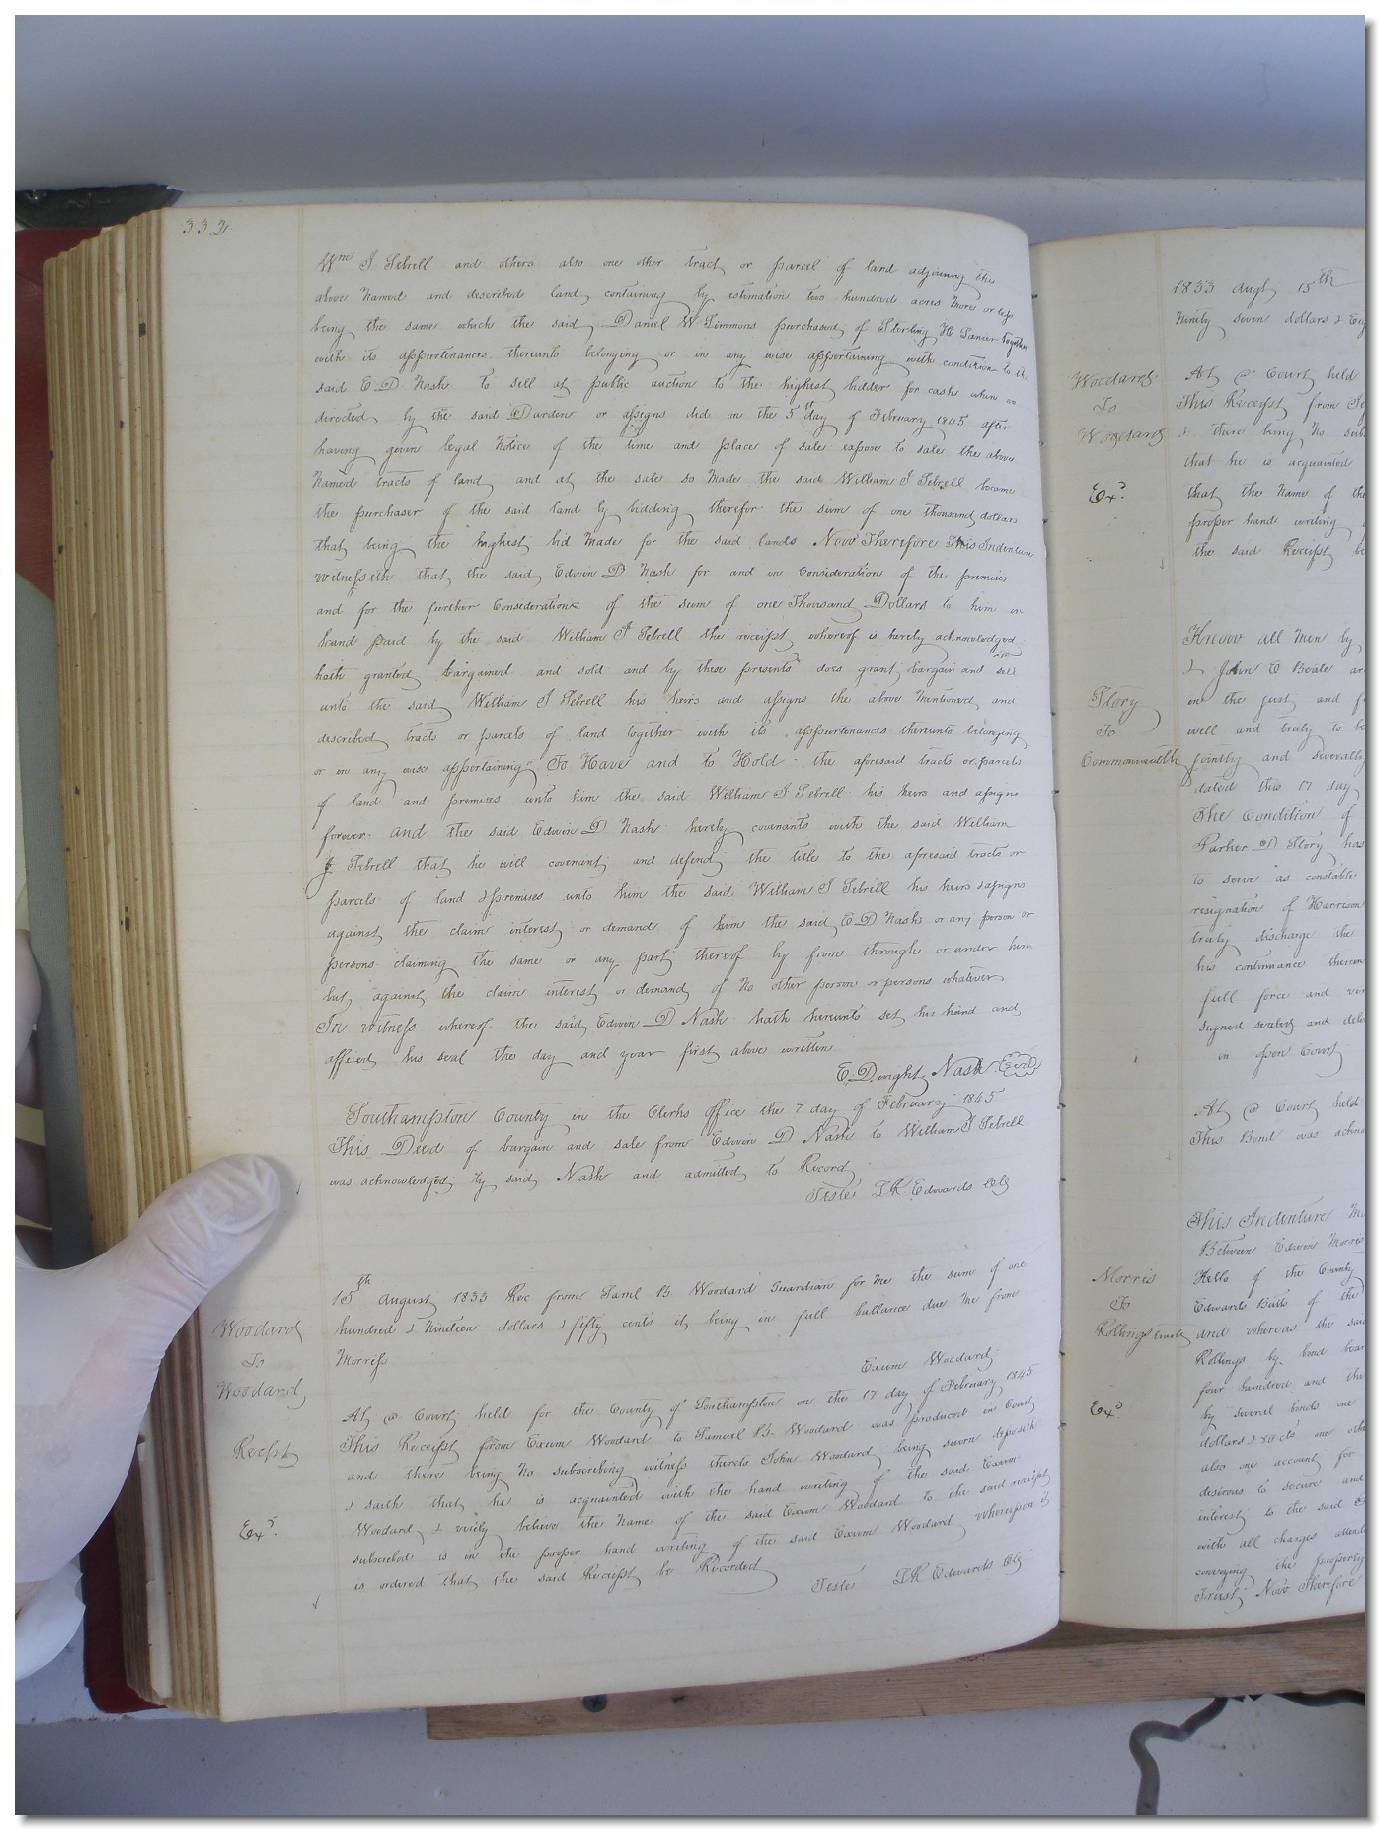 332
Wm J Sebrell and others also one other tract or parcel of land adjoining the
above named and described land containing by estimation two hundred acres more or less
being the same which the said Daniel W Simmons purchased of Sterling H Lanier together
with its appurtenances thereunto belonging or in any wise appertaining with condition to
said E D Nash to sell at public auction to the highest bidder for cash when so
directed by the said Darden or assigns did on the 5th day of February 1845 after
having given legal notice of the time and place of sale expose to sale the above
named tracts of land and at the sale so made the said William J Sebrell became
the purchaser of the said land by bidding therefor the sum of one thousand dollars
that being the highest bid made for the said lands Now Therefore This Indenture
witnesseth that the said Edwin D Nash for and in consideration of the premises
and for the further consideration of the sum of one Thousand Dollars to him in
hand paid by the said William J Sebrell the receipt whereof is hereby acknowledged
hath granted bargained and sold and by these presents does grant bargain and sell
unto the said William J Sebrell his heirs and assigns the above mentioned and
described tracts or parcels of land together with its appurtenances thereunto belonging
or in any wise appertaining To Have and to Hold the aforesaid tracts or parcels
of land and premises unto him the said William J Sebrell his heirs and assigns
forever and the said Edwin D Nash hereby covenants with the said William
J Sebrell that he will covenant and defend the title to the aforesaid tracts or
parcels of land & premises unto him the said William J Sebrell his heirs & assigns
against the claim interest or demand of him the said E D Nash or any person or
persons claiming the same or any part thereof by from through or under him
but against the claim interest or demand of no other person or persons whatever
In witness whereof the said Edwin D Nash hath hereunto set his hand and
affixed his seal the day and year first above written
E. Dwight Nash Seal
Southampton County in the Clerks office the 7 day of February 1845
This Deed of bargain and sale from Edwin D Nash to William J Sebrell
was acknowledged by said Nash and admitted to Record
Teste L R Edwards Clk
Woodard
To
Woodard
Receipt
Ex?
15th August 1833 Rec from Saml B Woodard Guardian for me the sum of one
hundred & nineteen dollars & fifty cents it being in full ballance due me from
Morriss
Exum Woodard
At a Court held for the County of Southampton on the 17 day of February 1845
This Receipt from Exum Woodard to Samuel B Woodard was produced in Court
and there being no subscribing witness thereto John Woodard being sworn deposeth
& saith that he is acquainted with the hand writing of the said Exum
Woodard & verily believe the name of the said Exum Woodard to the said receipt
subscribed is in the proper hand writing of the said Exum Woodard whereupon it
is ordered that the said Receipt be Recorded
Teste L R Edwards Clk
1833 Augt 15th
Ninety seven dollars &
Woodard
To
Woodard
Ex?
At a Court held
This Receipt from
& there being no
that he is acquainted
that the name of the
proper hand writing
the said Receipt
Story
To
Commonwealth
Know all men by
& John C Boate
in the just and
well and truly to
jointly and severally
dated this 17 day
The Condition of
Parker D Story has
to serve as constable
resignation of Harrison
truly discharge the
his continuance
full force and
signed sealed and
in open Court
At a Court held
This Bond was
Morris
To
Rollings trust
Ex?
This Indenture
Between Edwin Morris
Hells of the County
Edwards Butts of the
and whereas the said
Rollings by bond
four hundred and
by several bonds
dollars & cts one
also one account for
desirous to secure and
interest to the said
with all charges
conveying the property
Trust Now Therefore